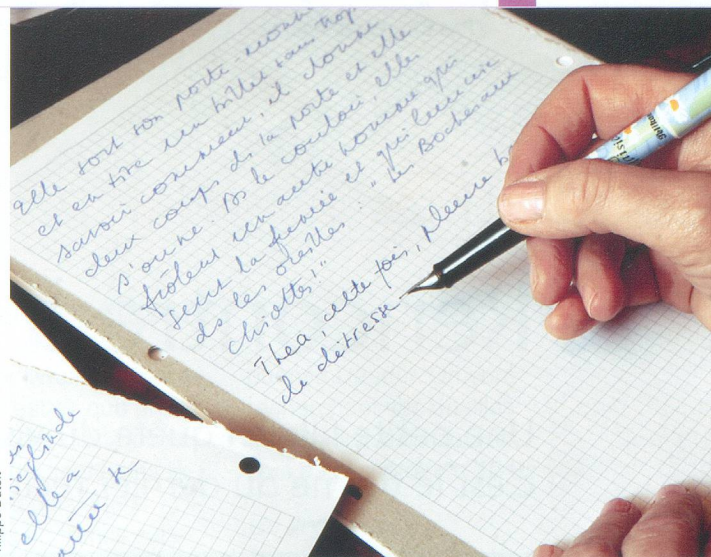 elle sort son porte-monn
et en tire un billet sans trop
savoir comment, il donne
deux coups ds la porte et elle
s'ouvre. Ds le couloir, elle
frôlent un autre homme qui
sent la fumée et qui lui crie
ds les oreilles : "Les Boches aux
chiottes!"
Thea, cette fois, pleure
de détresse
elle a